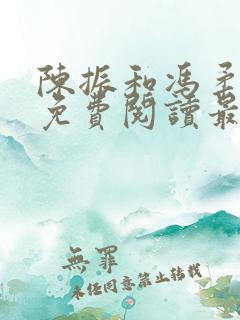 陳振和馮柔
免費閱讀最
無罪
未经同意禁止转载